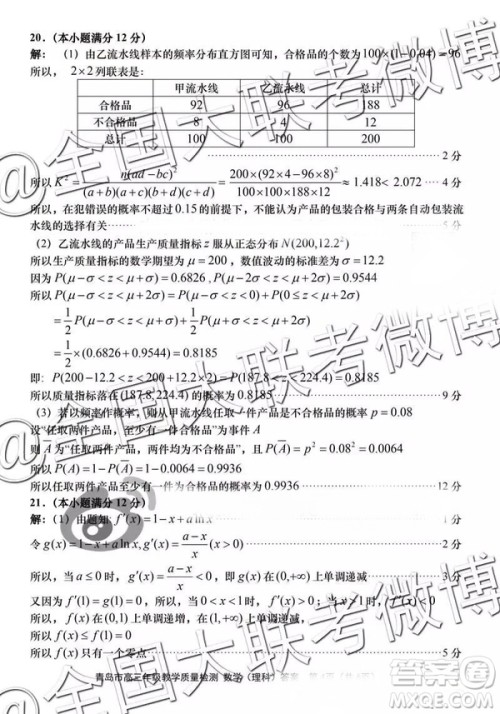 20.（本小题满分 12 分）
解：（1）由乙流水线样本的频率分布直方图可知，合格品的个数为100×(1−0.04)=96
所以，2×2列联表是：
甲流水线 乙流水线 总计
合格品 92 96 188
不合格品 8 4 12
总计 100 100 200
2 分
所以 K² = n(ad−bc)² / (a+b)(a+c)(b+d)(c+d) = 200×(92×4−96×8)² / 100×100×188×12 ≈1.418< 2.072 4 分
所以，在犯错误的概率不超过 0.15 的前提下，不能认为产品的包装合格与两条自动包装流
水线的选择有关 5 分
（2）乙流水线的产品生产质量指标 z 服从正态分布 N(200,12.2²)
所以质量指标的数学期望为 μ=200，数值波动的标准差为 σ=12.2
因为 P(μ−σ<z<μ+σ)=0.6826，P(μ−2σ<z<μ+2σ)=0.9544
即：P(200−12.2<z<200+12.2×2)=P(187.8<z<224.4)=0.8185
所以质量指标落在 (187.8,224.4) 的概率是 0.8185 9 分
（3）若以频率作概率，则从甲流水线任取一件产品是不合格品的概率 p=0.08
设“任取两件产品，至少有一件为合格品”为事件 A
则 为“任取两件产品，两件均为不合格品”，且 P(A̅)=p²=0.08²=0.0064
所以 P(A)=1−P(A̅)=1−0.0064=0.9936
所以任取两件产品至少有一件为合格品的概率为 0.9936 12 分
21.（本小题满分 12 分）
解：（1）由题知：f′(x)=1−x+a ln x， 1 分
令 g(x)=1−x+a ln x，g′(x)= (a−x)/x (x>0) 2 分
所以，当 a≤0 时，g′(x)= (a−x)/x <0，即 g(x) 在 (0,+∞) 上单调递减 3 分
又因为 f′(1)=g(1)=0，所以，当 0<x<1 时，f′(x)>0；当 x>1 时，f′(x)<0
所以，f(x) 在 (0,1) 上单调递增，在 (1,+∞) 上单调递减
所以 f(x)≤f(1)=0
所以，f(x) 只有一个零点. 5 分
青岛市高三年级教学质量检测 数学（理科）答案
@全国大联考微博